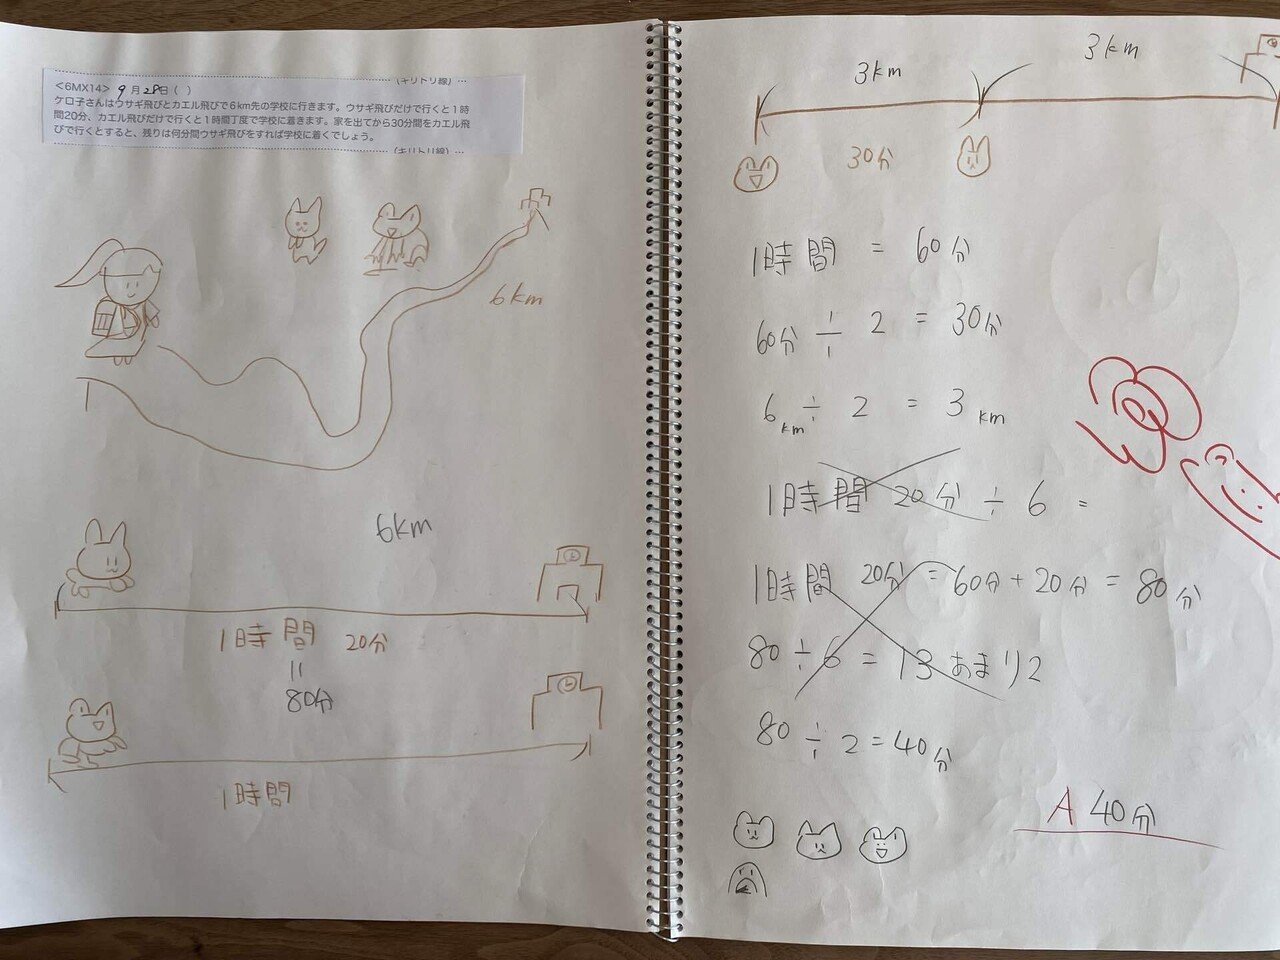 (キリトリ線)
<6MX14> 9月28日( )
ケロ子さんはウサギ飛びとカエル飛びで6km先の学校に行きます。ウサギ飛びだけで行くと1時
間20分、カエル飛びだけで行くと1時間丁度で学校に着きます。家を出てから30分間をカエル飛
びで行くとすると、残りは何分間ウサギ飛びをすれば学校に着くでしょう。
(キリトリ線)
6km
6km
1時間 20分
=
80分
1時間
3km 3km
30分
1時間 = 60分
60分 ÷ 2 = 30分
6km ÷ 2 = 3km
1時間 20分 ÷ 6 =
1時間 20分 = 60分 + 20分 = 80分
80 ÷ 6 = 13 あまり2
80 ÷ 2 = 40分
A 40分